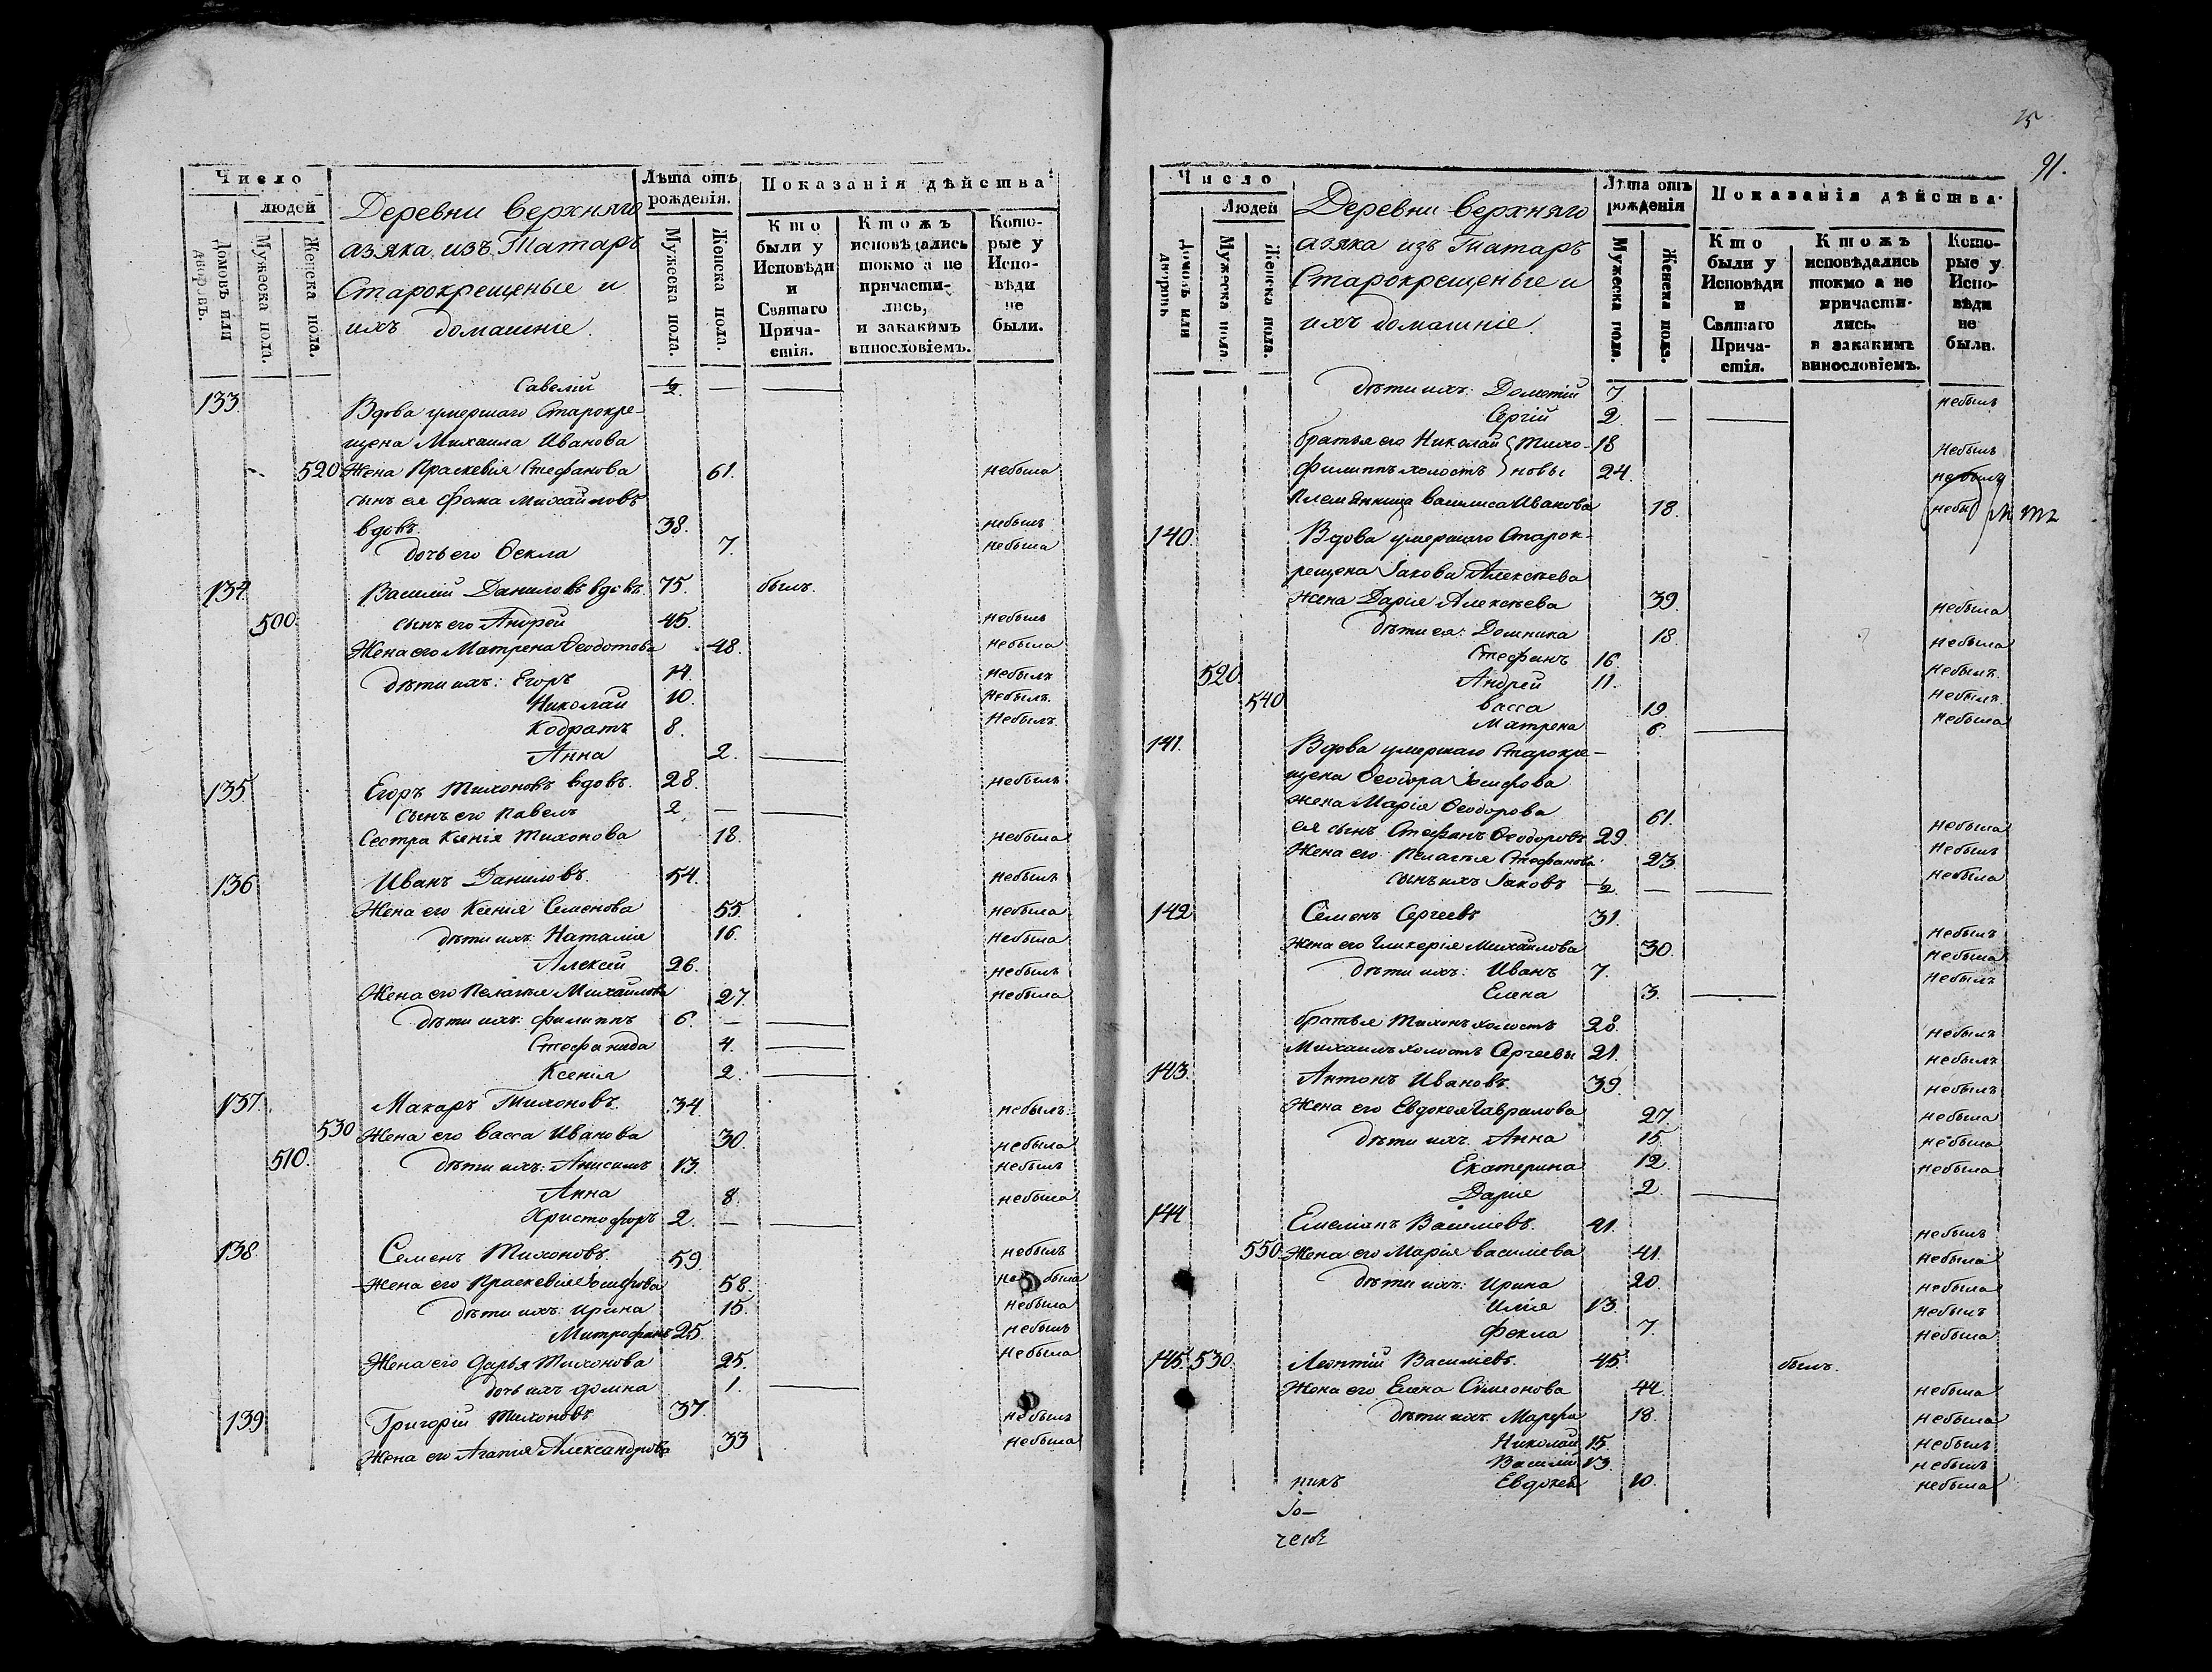 Число
людей
Домовъ или дворовъ.
Мужеска пола.
Женска пола.
Деревни Верхняго
азяка, изъ Татаръ
Старокрещеные и
ихъ домашніе.
Лѣта отъ рожденія.
Мужеска пола.
Женска пола.
Показанія дѣйства
Кто были у Исповѣди и Святаго Причастія.
Ктожъ исповѣдались токмо а не причастились, и закакимъ винословіемъ.
Которые у Исповѣди не были.
Савелій ½ — —
133. Вдова умершаго Старокре-
щена Михаила Иванова
520 Жена Праскевія Стефанова 61. небыла
сынъ ея Фома Михайловъ
вдовъ. 38. небылъ
дочь его Ѳекла 7. небыла
134 Василій Даниловъ вдовъ. 75. былъ.
500. сынъ его Андрей 45. небылъ
Жена его Матрена Ѳеодотова 48. небыла
дѣти ихъ: Егоръ 14. небылъ
Николай 10. небылъ.
Кодратъ 8. небылъ.
Анна 2. —
135. Егоръ Тихоновъ вдовъ. 28. небылъ
сынъ его Павелъ 2. — —
Сестра Ксенія Тихонова 18. небыла
136 Иванъ Даниловъ. 54. небылъ
Жена его Ксения Семенова 55. небыла
дѣти ихъ: Наталія 16. небыла
Алексѣй 26. небылъ
Жена его Пелагея Михайлова 27. небыла
дѣти ихъ: Филиппъ 6. — —
Стефанида 4. —
Ксения 2. —
137. Макаръ Тихоновъ. 34. небылъ.
530 Жена его Васса Иванова 30. небыла
510. дѣти ихъ: Анисимъ 13. небылъ
Анна 8. небыла
Христофоръ 2. — —
138. Семенъ Тихоновъ. 59. небылъ
Жена его Праскевія Іосифова 58. не была
дѣти ихъ: Ирина 15. небыла
Митрофанъ 25. небылъ
Жена его Дарья Тихонова 25. небыла
дочь ихъ Домна 1. —
139 Григорій Тихоновъ 37. небылъ
Жена его Агапія Александрова 33 небыла
25
91.
Число
Людей
Домовъ или дворовъ
Мужеска пола.
Женска пола.
Деревни Верхняго
азяка изъ Татаръ
Старокрещеные и
ихъ домашніе.
Лѣта отъ рожденія
Мужеска пола.
Женска пола.
Показанія дѣйства.
Кто были у Исповѣди и Святаго Причастія.
Ктожъ исповѣдались токмо а не причастились. и закакимъ винословіемъ.
Которые у Исповѣди не были.
дѣти ихъ: Дометій 7. небылъ
Сергій 2 — —
братья его Николай } Тихо- 18 небылъ
Филиппъ холостъ } новы 24. небылъ
Племянница Василиса Иванова 18. небы
140. Вдова умершаго Старок-
рещена Іакова Алексѣева
Жена Дарія Алексѣева 39. небыла
дѣти ея: Домника 18. небыла
Стефанъ 16. небылъ.
520. Андрей 11. небылъ.
540 Васса 19. небыла
Матрена 6. —
141. Вдова умершаго Старокре-
щена Ѳеодора Іосифова
жена Марія Ѳеодорова 61. небыла
ея сынъ Стефанъ Ѳеодоровъ 29. небылъ
Жена его Пелагья Стефанова 23. небыла
сынъ ихъ Іаковъ ½ — —
142 Семенъ Сергеевъ 31. небылъ
Жена его Гликерія Михайлова 30. небыла
дѣти ихъ: Иванъ 7. небылъ
Елена 3. —
братья Тихонъ холостъ 28. небылъ
Михаилъ холостъ Сергеевы 21. небылъ
143. Антонъ Ивановъ. 39. небылъ
Жена его Евдокея Гаврилова 27. небыла
дѣти ихъ. Анна 15. небыла
Екатерина 12. небыла
Дарія 2. —
144 Емеліанъ Василіевъ. 41. небылъ
550. Жена его Марія Василіева 41. небыла
дѣти ихъ: Ирина 20. небыла
Илія 13. небылъ
Фекла 7. небыла
145. 530. Леонтій Василіевъ. 45. былъ.
Жена его Елена Симеонова 44. небыла
дѣти ихъ. Марфа 18. небыла
Николай 15. небылъ
Василій 13. небылъ
никъ Евдокея 10. небыла
Іо-